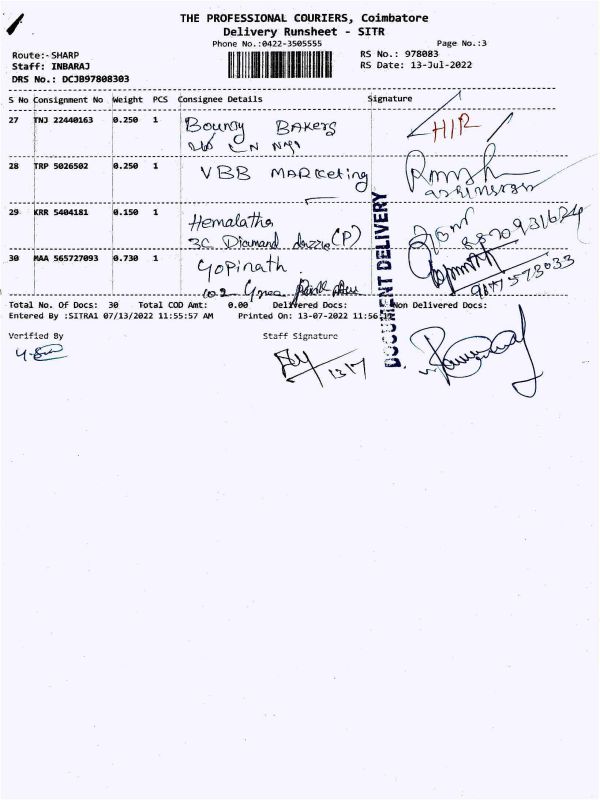 THE PROFESSIONAL COURIERS, Coimbatore
Delivery Runsheet - SITR
Phone No.:0422-3505555 Page No.:3
Route:-SHARP RS No.: 978083
Staff: INBARAJ RS Date: 13-Jul-2022
DRS No.: DCJB97808303
S No Consignment No Weight PCS Consignee Details Signature
27 TNJ 22440163 0.250 1 Bouncy Bakers H/R
28 TRP 5026502 0.250 1 VBB MARKeting
29 KRR 5404181 0.150 1 Hemalatha
3C Diamand (P)
30 MAA 565727093 0.730 1 Gopinath
102
DOCUMENT DELIVERY
Total No. Of Docs: 30 Total COD Amt: 0.00 Delivered Docs: Non Delivered Docs:
Entered By :SITRA1 07/13/2022 11:55:57 AM Printed On: 13-07-2022 11:56
Verified By Staff Signature
13/7